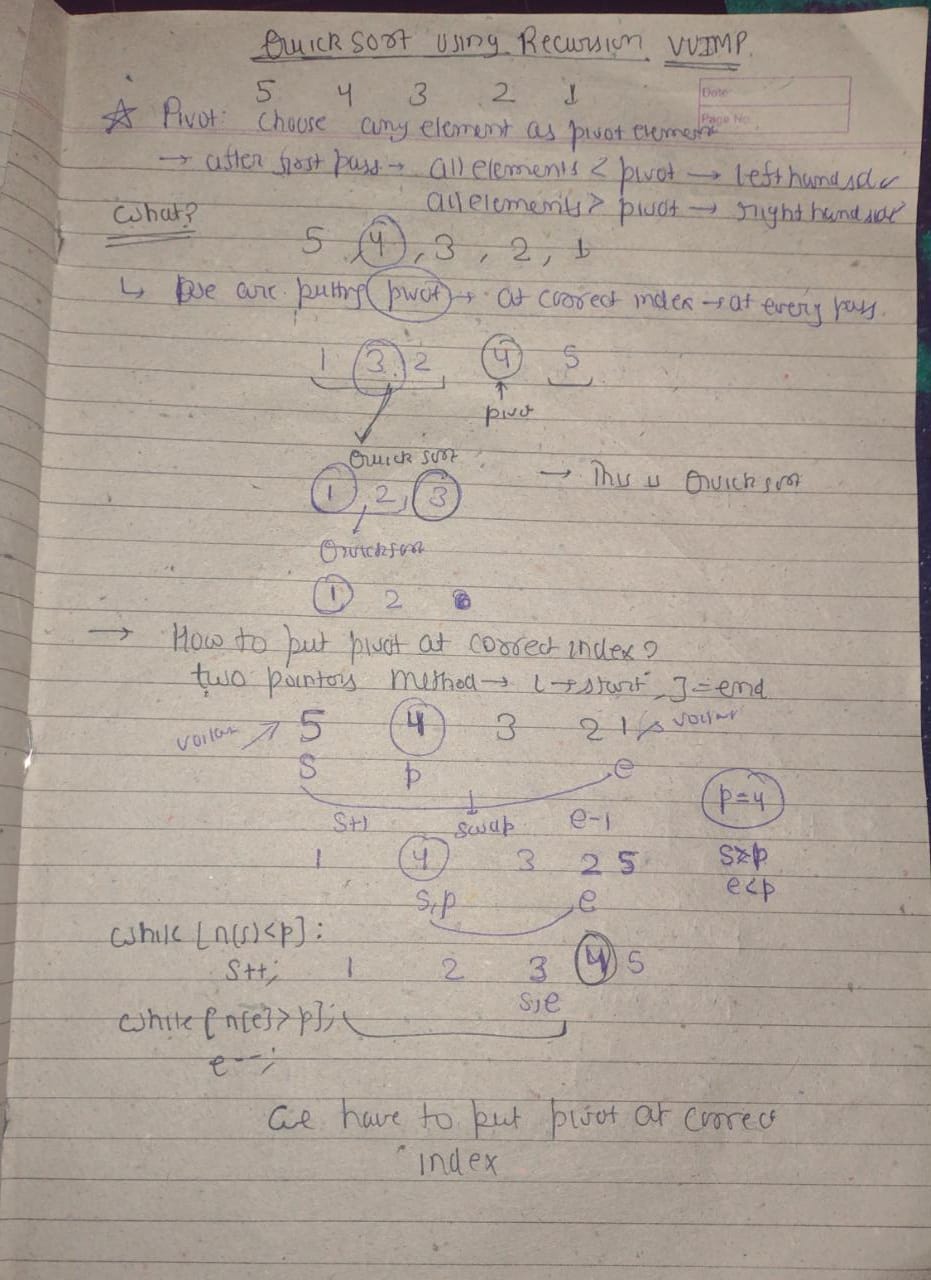 Quick sort using Recursion VVIMP.
5 4 3 2 1
Date
Page No.
☆ Pivot: choose any element as pivot element
→ after first pass → all elements < pivot → left hand side
all elements > pivot → right hand side
What?
5, 4, 3, 2, 1
↳ we are putting pivot → at correct index → at every pass.
1 3 2 4 5
↑
pivot
Quick sort
1, 2, 3 → This is Quick sort
Quicksort
1 2
→ How to put pivot at correct index?
two pointers method → i → start, j = end
5 4 3 2 1
s p e
p=4
s+1 swap e-1
1 4 3 2 5
s,p e
e<p
while [n(s)<p]:
s++; 1 2 3 4 5
s,e
while [n[e]>p];
e--;
we have to put pivot at correct
index